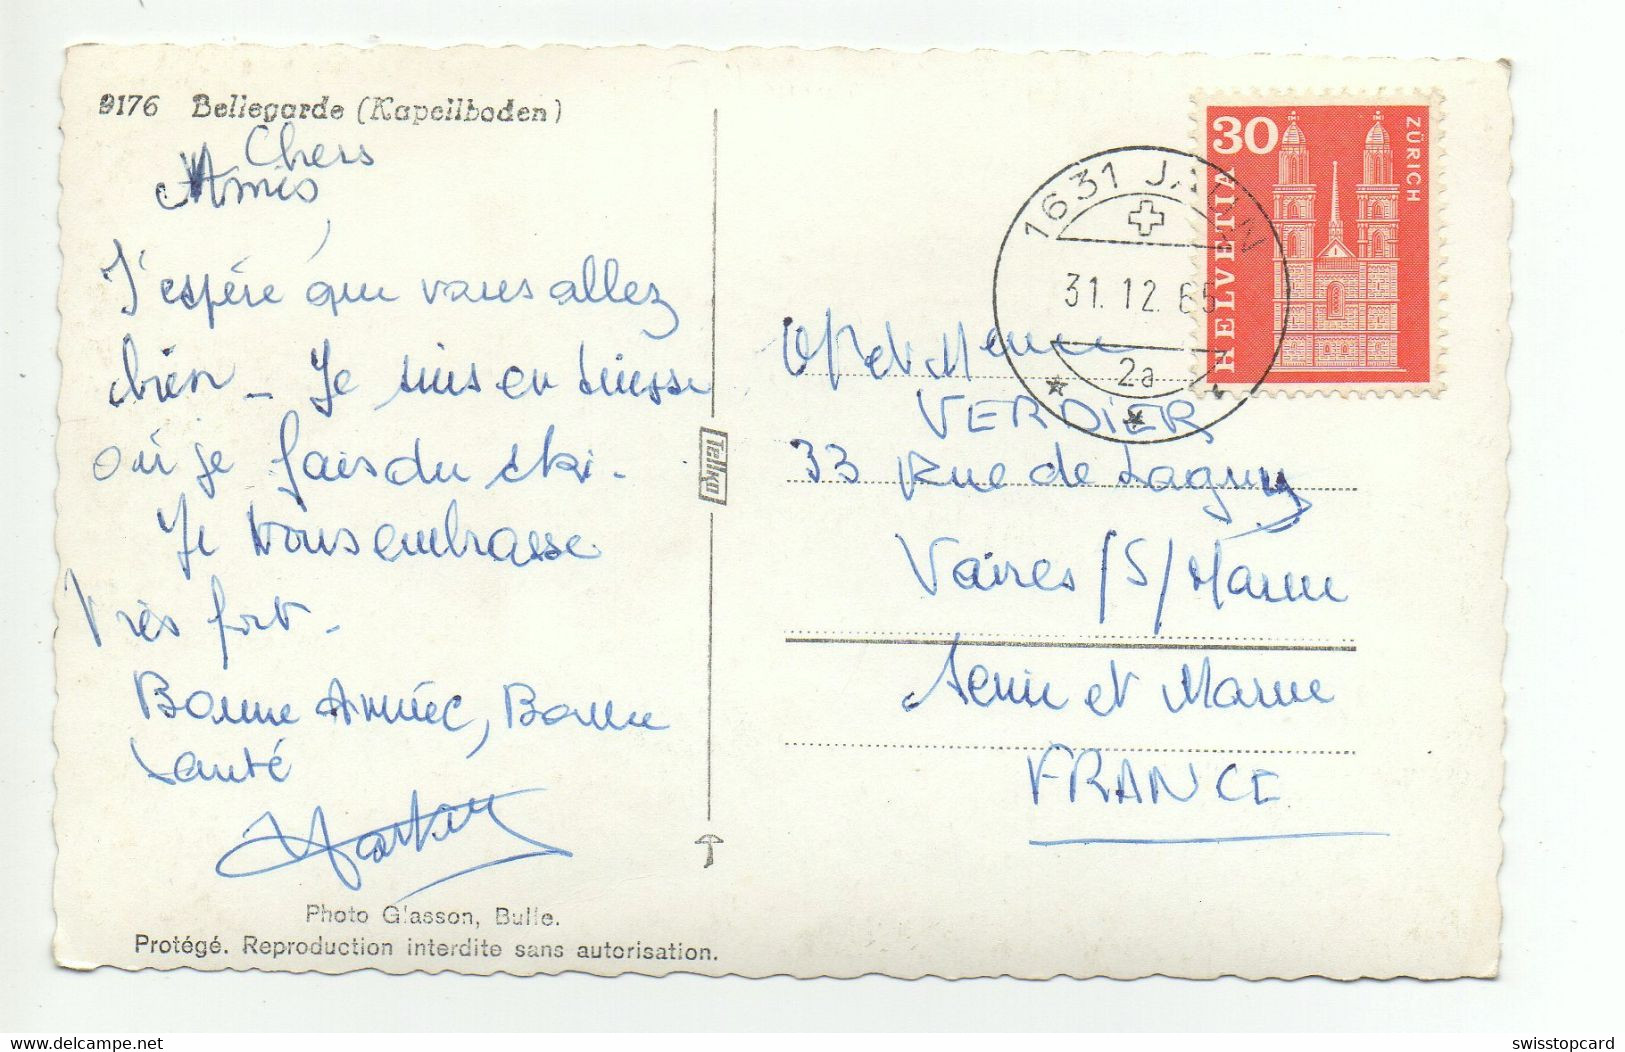 9176 Bellegarde (Kapellboden)
Chers
Amis,
J'espère que vous allez
bien - Je suis en Suisse
où je fais du ski.
Je vous embrasse
très fort.
Bonne Année, Bonne
Santé
Photo Glasson, Bulle.
Protégé. Reproduction interdite sans autorisation.
Tellko
1631 JAUN
31.12.65
2a
30
HELVETIA
ZÜRICH
Mr et Mme
VERDIER
33 Rue de Lagny
Vaires /S/ Marne
Seine et Marne
FRANCE
delcampe.net
swisstopcard